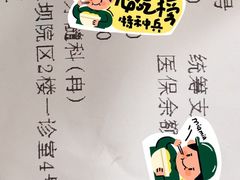 特种兵
miamia
统筹支
医保余额
科(冉
坝院区2楼一诊室4号